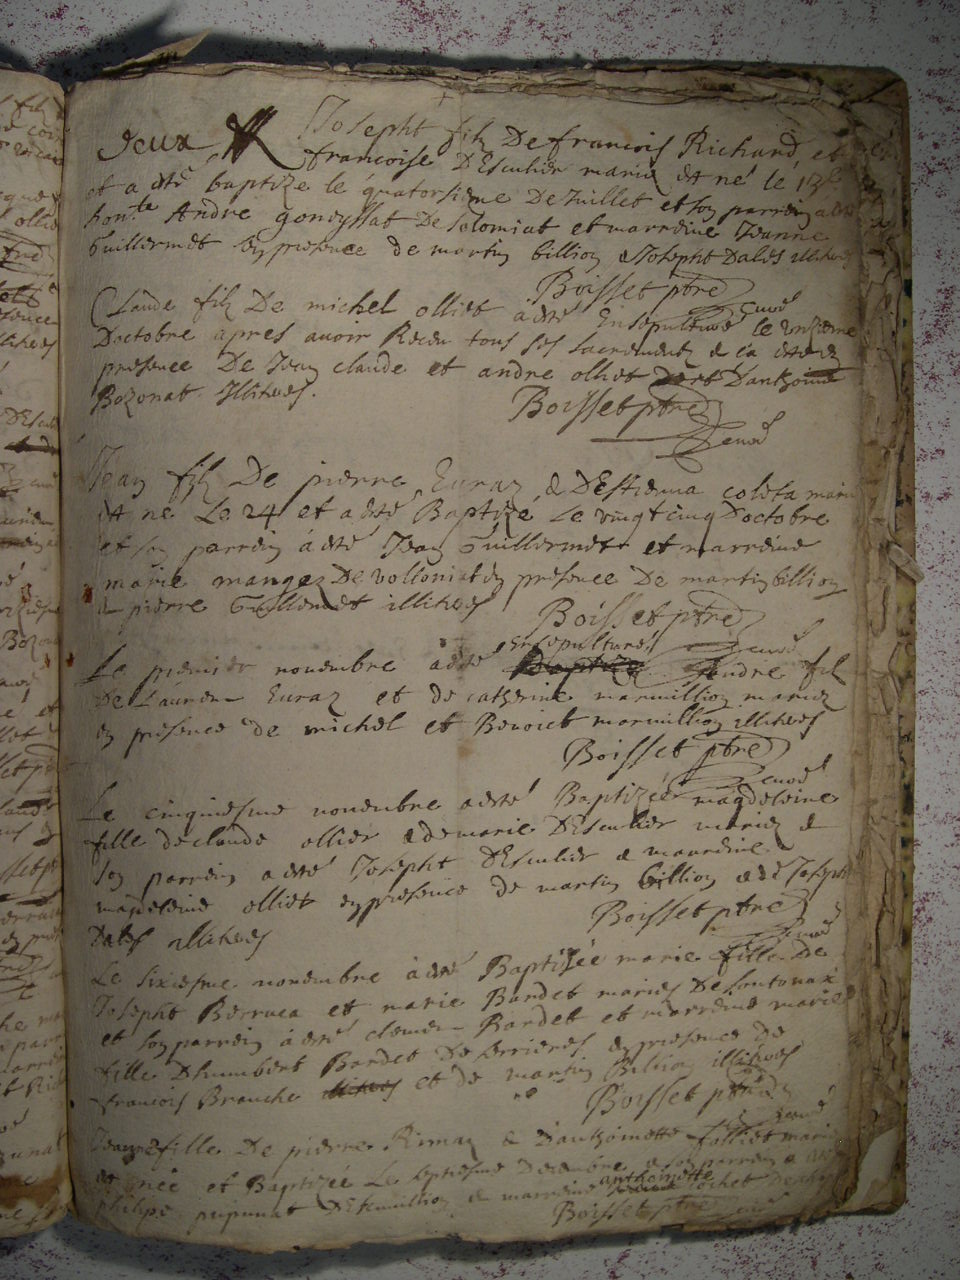 Josepht filz De francois Richard et
francoise D'Esculier mariez est né le 13e
et a esté baptizé le quatorsieme De Juillet et son parrein a esté
hon.te André goneyssat De Solomiat et marreine Jeanne
Guillermet en presence de martin billion & Josepht Dalés illitérés
Boisset ptre
Claude filz De michel olliet a esté Ensepulturé le unzieme
Doctobre apres avoir Receu tous ses sacrements & ca esté en
presence De Jean claude et andre olliet Danthoine
Bozonat Illiteres.
Boisset ptre
Jean filz De pierre Euraz & D'Estienna coleta mariez
est né Le 24 et a esté Baptizé Le vingt cinq Doctobre
et son parrein a esté Jean Guillermet et marreine
marie mangez De volloniat en presence De martin billion
& pierre Guillermet illiteres
Boisset ptre
Ensepulturé
Le premier novembre a esté Baptizé Andre filz
De Laurent Euraz et de catherine marmillion mariez
en presence de michel et Benoict marmillion illiteres
Boisset ptre
Le cinquiesme novembre a esté Baptizée magdeleine
fille de claude ollier & de marie D'Esculier mariez &
son parrein a esté Josepht D'Esculier & marreine
madeleine olliet en presence de martin billion & de Joseph
Dales illiteres
Boisset ptre
Le sixiesme novembre a esté Baptizée marie fille De
Josepht Berruea et marie Bandet mariés De Soutonax
et son parrein a esté clement Bardet et marreine marie
fille D'humbert Bardet De serrieres en presence de
francois Branche illiteres et de martin Billion illiteres
Boisset ptre
Jeanne fille De pierre Rimaz & D'anthoinette folliet mariez
est née et Baptizée Le septiesme Decembre & son parrein a esté
anthoinette
philipe pupunat & marreine
Boisset ptre